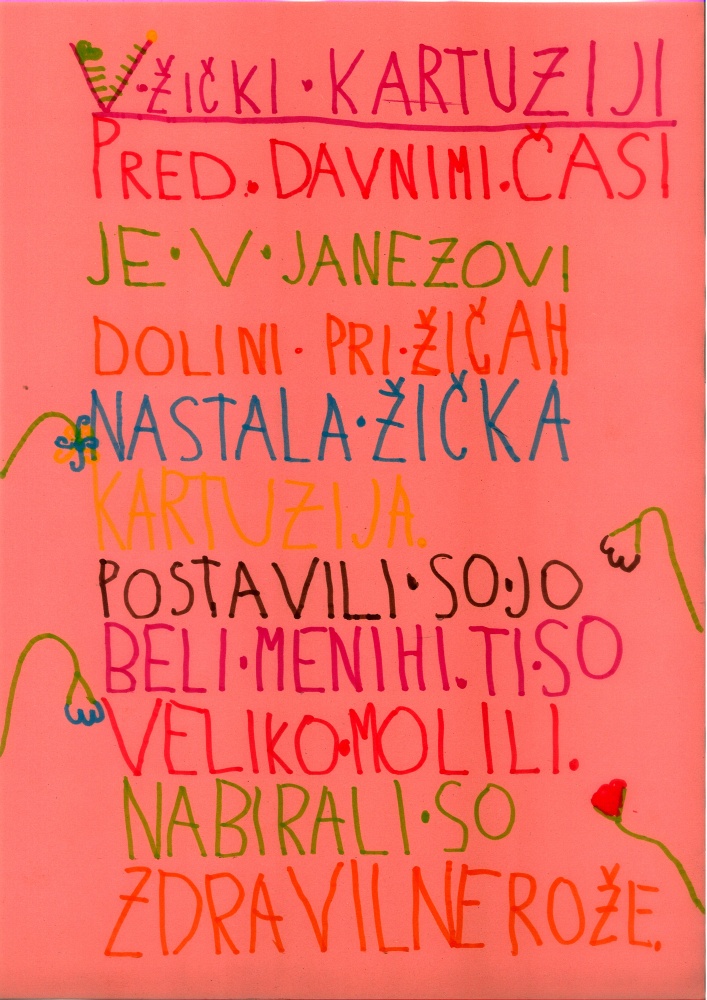 V·ŽIČKI·KARTUZIJI
PRED·DAVNIMI·ČASI
JE·V·JANEZOVI
DOLINI·PRI·ŽIČAH
NASTALA·ŽIČKA
KARTUZIJA.
POSTAVILI·SO·JO
BELI·MENIHI.TI·SO
VELIKO·MOLILI.
NABIRALI·SO
ZDRAVILNE ROŽE.